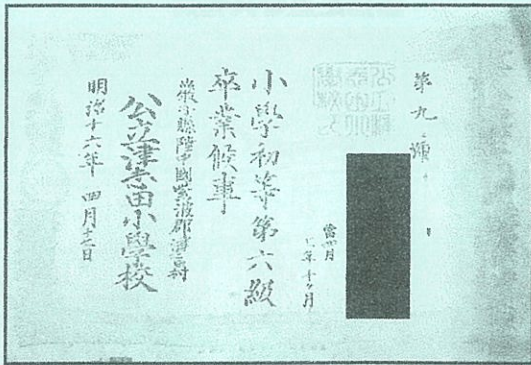 第九號
當四月
年十ヶ月
小學初等第六級
卒業候事
巖手縣陸中國紫波郡津志田村
公立津志田小學校
明治十六年 四月